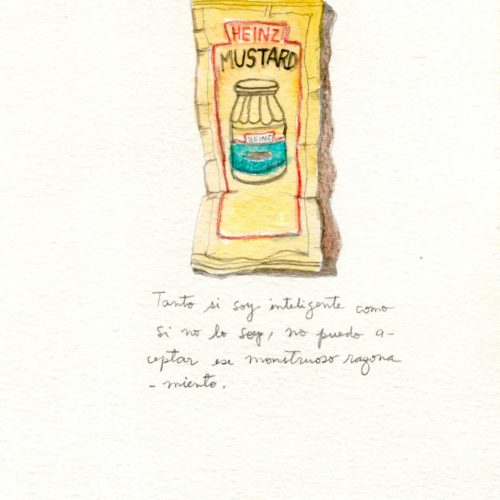 HEINZ
MUSTARD
HEINZ
Tanto si soy inteligente como
si no lo soy, no puedo a-
ceptar ese monstruoso razona
-miento.